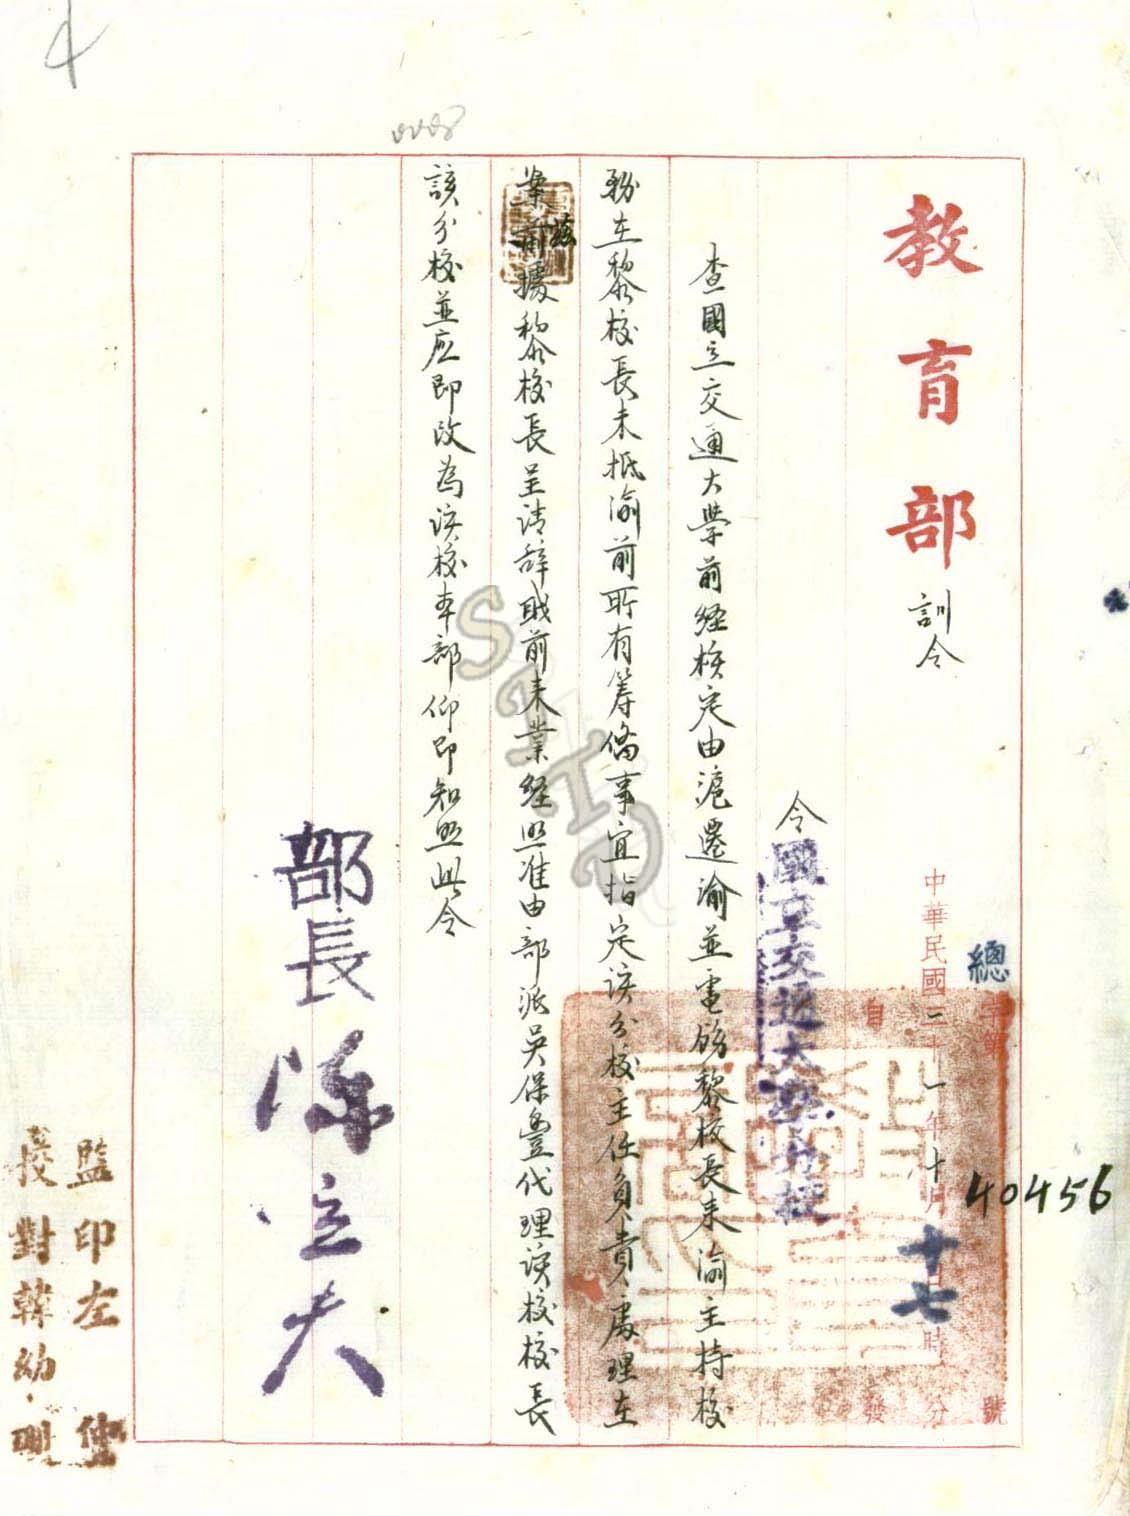 教育部訓令
總字第40456號
中華民國三十一年十月十七日時分
自發
令國立交通大學分校
查國立交通大學前經核定由滬遷渝並電飭黎校長來渝主持校
務在黎校長未抵渝前所有籌備事宜指定該分校主任負責處理在
案茲據黎校長呈請辭職前來業經照准由部派吳保豐代理該校校長
該分校並应即改為該校本部仰即知照此令
部長陳立夫
監印左仲
校對韓幼明
4
0008
STHD